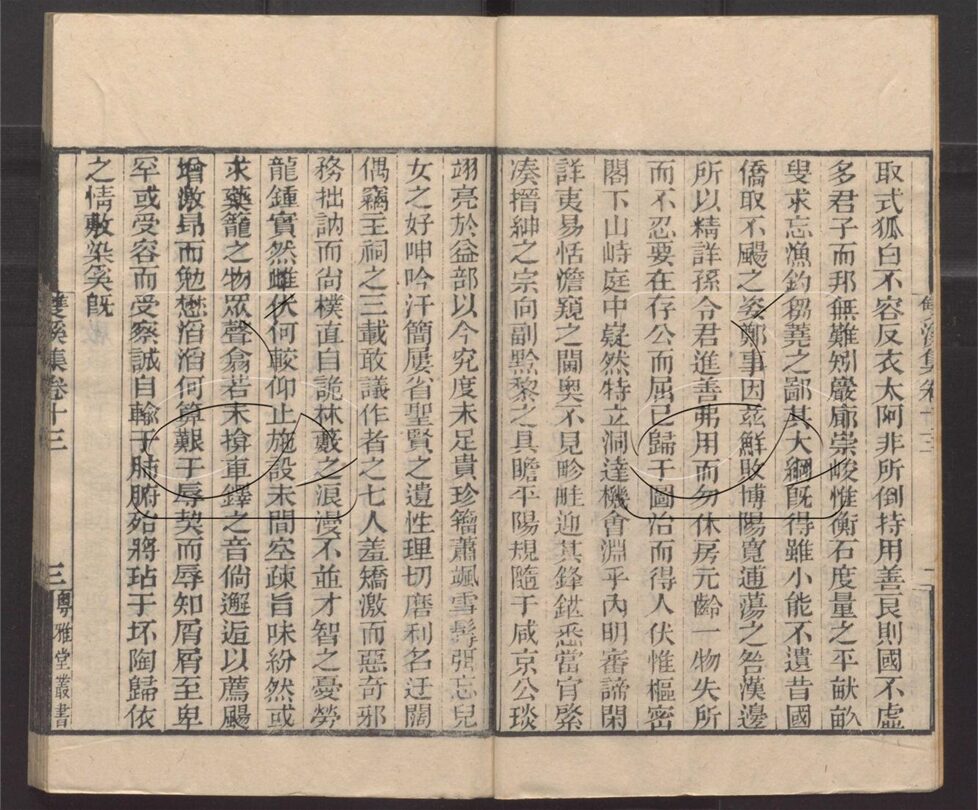 取式狐白不容反衣太阿非所倒持用善良則國不虛
多君子而邦無難矧巖廊崇峻惟衡石度量之平畎畝
叟求忘漁釣芻蕘之鄙其大綱旣得雖小能不遺昔國
僑取不颺之姿鄭事因茲鮮敗博陽寬逋蕩之咎漢邊
所以精詳孫令君進善弗用而勿休房元齡一物失所
而不忍要在存公而屈已歸于圖治而得人伏惟樞密
閣下山峙庭中嶷然特立洞達機會淵乎內明審諦閑
詳夷易恬澹窺之閫奧不見畛畦迎其鋒鍖悉當肯綮
湊搢紳之宗向副黔黎之具瞻平陽規隨于咸京公琰
翊亮於益部以今究度未足貴珍籀蕭颯雪髯强忘兒
女之好呻吟汗簡屢省聖賢之遺性理切磨利名迂闊
偶竊主祠之三載敢議作者之七人羞矯激而惡奇邪
務拙訥而尙樸直自詭林藪之浪漫不並才智之憂勞
龍鍾實然雌伏何較仰止施設未間空疎旨味紛然或
求藥籠之物眾聲翕若未揜車鐸之音倘邂逅以薦颺
增激昂而勉懋滔滔何算艱于辱契而辱知屑屑至卑
罕或受容而受察誠自輸于肺腑殆將玷于坏陶歸依
之情敷染奚旣
雙溪集卷十三
三
粵雅堂叢書